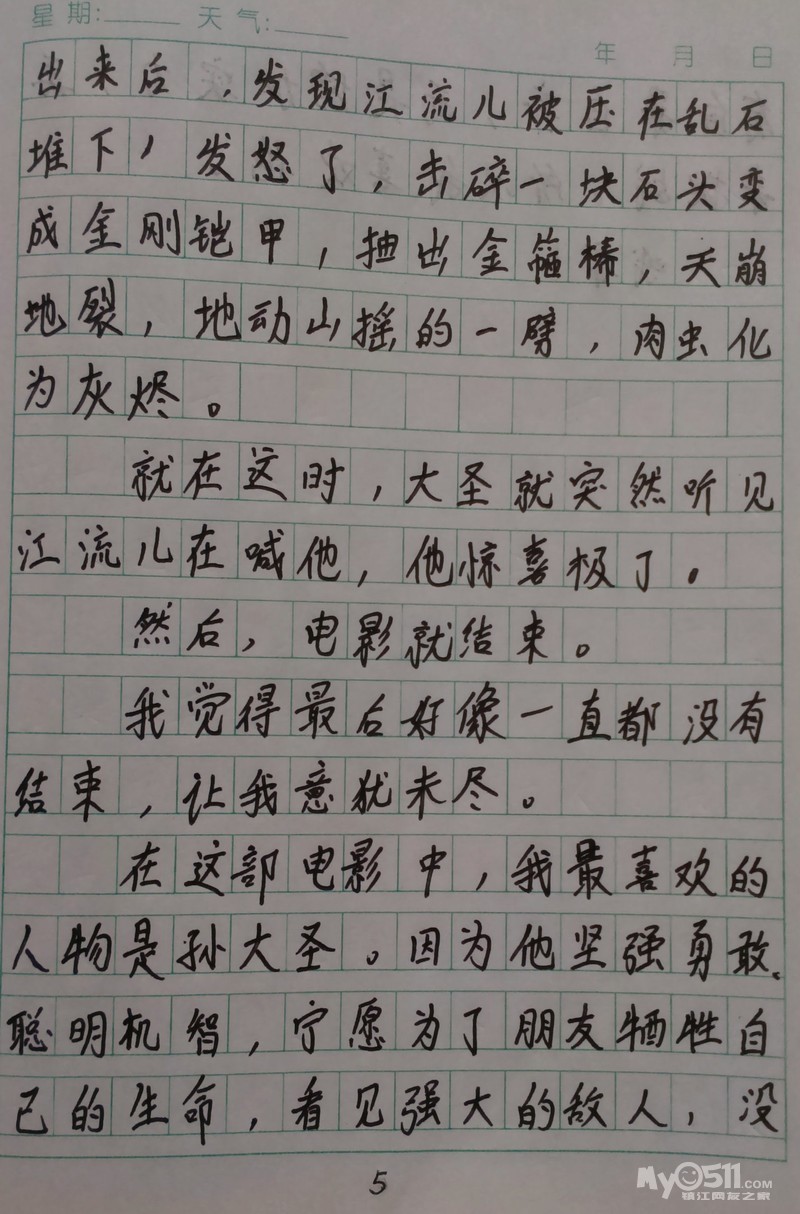 星期:_____ 天气:_____
年 月 日
出来后，发现江流儿被压在乱石
堆下，发怒了，击碎一块石头变
成金刚铠甲，抽出金箍棒，天崩
地裂，地动山摇的一劈，肉虫化
为灰烬。
就在这时，大圣就突然听见
江流儿在喊他，他惊喜极了。
然后，电影就结束。
我觉得最后好像一直都没有
结束，让我意犹未尽。
在这部电影中，我最喜欢的
人物是孙大圣。因为他坚强勇敢、
聪明机智，宁愿为了朋友牺牲自
己的生命，看见强大的敌人，没
5
My0511.com
镇江网友之家